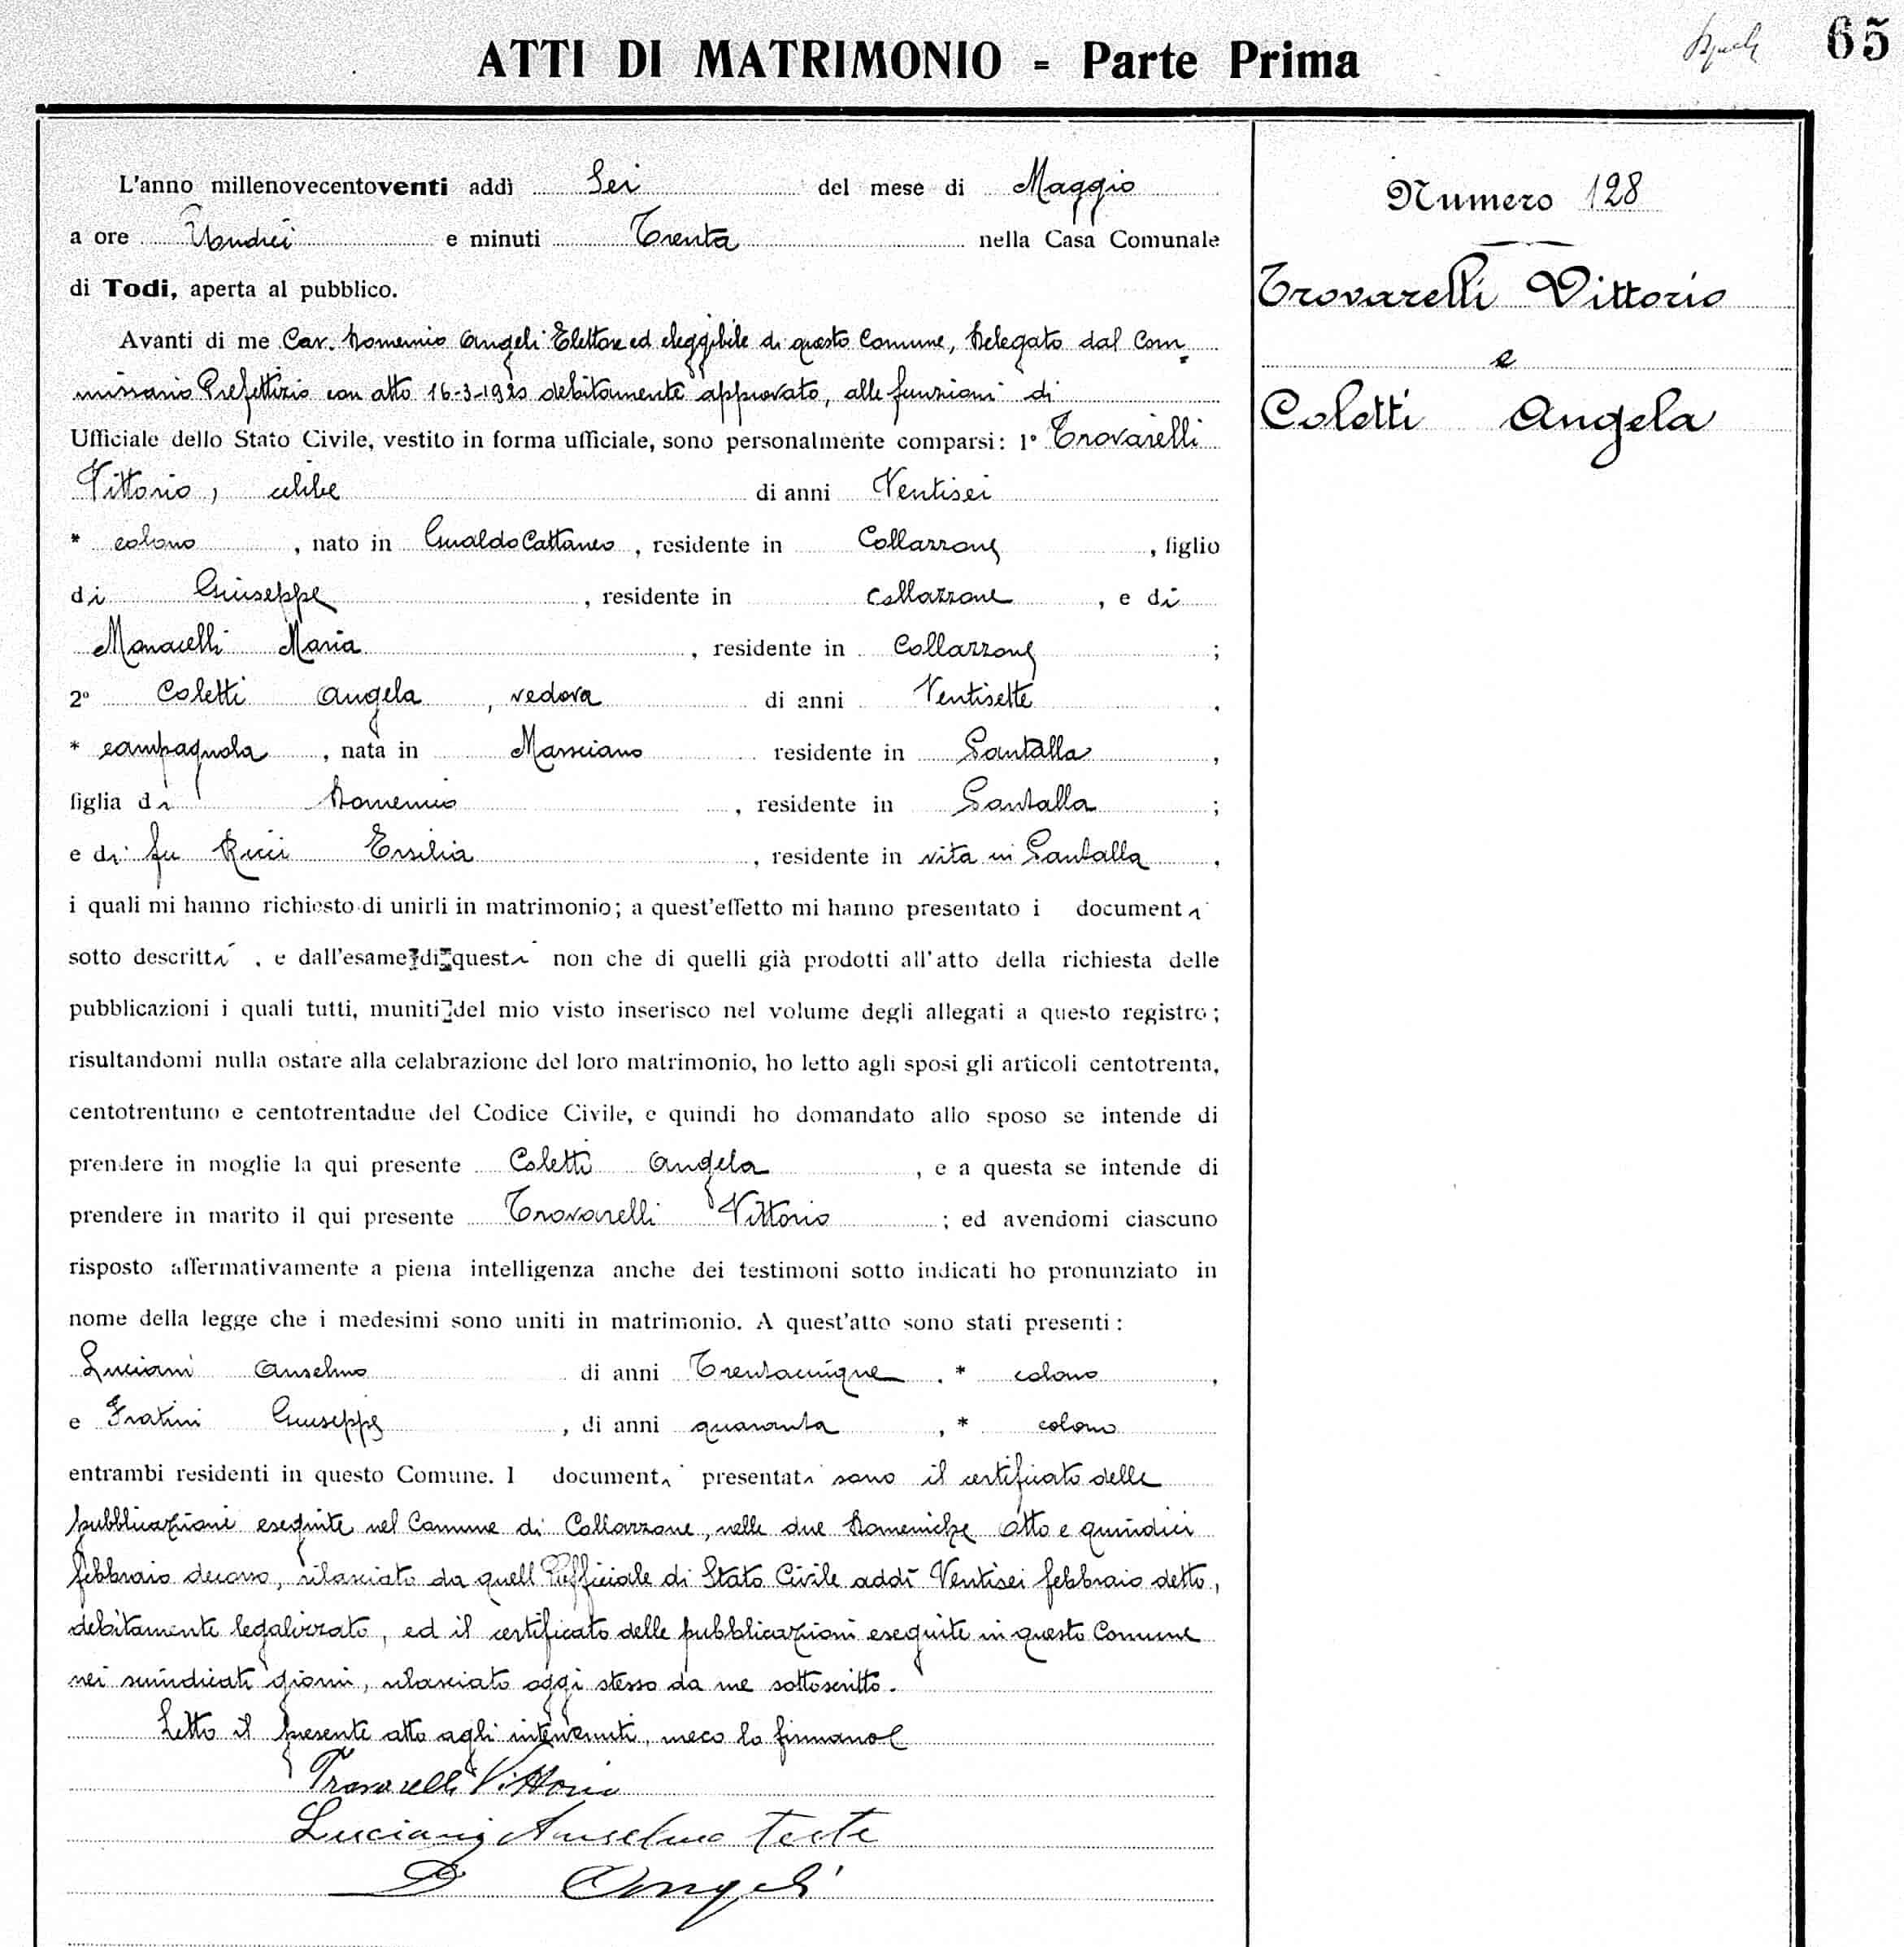 65
ATTI DI MATRIMONIO - Parte Prima
L'anno millenovecentoventi addì Sei del mese di Maggio
a ore Undici e minuti Trenta nella Casa Comunale
di Todi, aperta al pubblico.
Avanti di me Cav. Domenico Angeli Elettore ed eleggibile di questo Comune, Delegato dal Com
missario Prefettizio con atto 16-3-1920 debitamente approvato, alle funzioni di
Ufficiale dello Stato Civile, vestito in forma ufficiale, sono personalmente comparsi: 1° Trovarelli
Vittorio, celibe di anni Ventisei
* colono, nato in Gualdo Cattaneo, residente in Collazzone, figlio
di Giuseppe, residente in Collazzone, e di
Monacelli Maria, residente in Collazzone;
2° Coletti Angela, vedova di anni Ventisette,
* campagnola, nata in Marsciano residente in Pantalla,
figlia di Domenico, residente in Pantalla;
e di fu Ricci Ersilia, residente in vita in Pantalla,
i quali mi hanno richiesto di unirli in matrimonio; a quest'effetto mi hanno presentato i documenti
sotto descritti, e dall'esame di questi non che di quelli già prodotti all'atto della richiesta delle
pubblicazioni i quali tutti, muniti del mio visto inserisco nel volume degli allegati a questo registro;
risultandomi nulla ostare alla celabrazione del loro matrimonio, ho letto agli sposi gli articoli centotrenta,
centotrentuno e centotrentadue del Codice Civile, e quindi ho domandato allo sposo se intende di
prendere in moglie la qui presente Coletti Angela, e a questa se intende di
prendere in marito il qui presente Trovarelli Vittorio; ed avendomi ciascuno
risposto affermativamente a piena intelligenza anche dei testimoni sotto indicati ho pronunziato in
nome della legge che i medesimi sono uniti in matrimonio. A quest'atto sono stati presenti:
Luciani Anselmo di anni Trentacinque, * colono,
e Fratini Giuseppe, di anni quaranta, * colono
entrambi residenti in questo Comune. I documenti presentati sono il certificato delle
pubblicazioni eseguite nel Comune di Collazzone, nelle due Domeniche otto e quindici
febbraio decorso, rilasciato da quell'Ufficiale di Stato Civile addì Ventisei febbraio detto,
debitamente legalizzato, ed il certificato delle pubblicazioni eseguite in questo Comune
nei suindicati giorni, rilasciato oggi stesso da me sottoscritto.
Letto il presente atto agli intervenuti, meco lo firmano
Trovarelli Vittorio
Luciani Anselmo teste
D Angeli
Numero 128
Trovarelli Vittorio
e
Coletti Angela